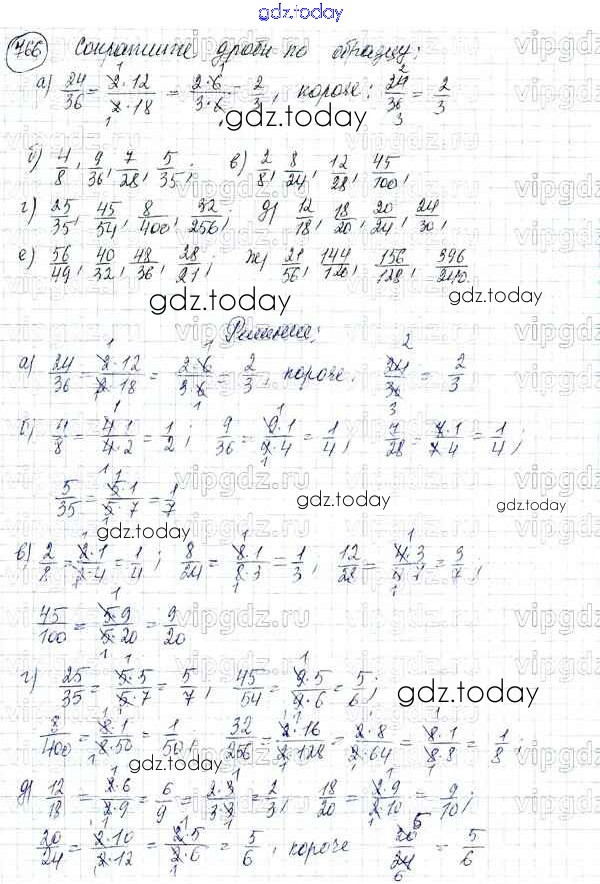 gdz.today
766 Сократите дроби по образцу:
а) 24/36 = 2·12/2·18 = 2·6/3·6 = 2/3, короче: 24/36 = 2/3
gdz.today
б) 4/8, 9/36, 7/28, 5/35; в) 2/8, 8/24, 12/28, 45/100;
г) 25/35, 45/54, 8/400, 32/256; д) 12/18, 18/20, 20/24, 24/30;
е) 56/49, 40/32, 48/36, 28/21; ж) 21/56, 144/120, 156/128, 396/240.
gdz.today gdz.today
Решение:
а) 24/36 = 2·12/2·18 = 2·6/3·6 = 2/3, короче: 24/36 = 2/3
б) 4/8 = 4·1/4·2 = 1/2; 9/36 = 9·1/9·4 = 1/4; 7/28 = 7·1/7·4 = 1/4;
5/35 = 5·1/5·7 = 1/7
gdz.today gdz.today
gdz.today
в) 2/8 = 2·1/2·4 = 1/4; 8/24 = 8·1/8·3 = 1/3; 12/28 = 4·3/4·7 = 3/7;
45/100 = 5·9/5·20 = 9/20
г) 25/35 = 5·5/5·7 = 5/7; 45/54 = 9·5/9·6 = 5/6;
gdz.today
8/400 = 8·1/8·50 = 1/50; 32/256 = 2·16/2·128 = 2·8/2·64 = 8·1/8·8 = 1/8;
gdz.today
д) 12/18 = 2·6/2·9 = 6/9 = 2·3/3·3 = 2/3; 18/20 = 2·9/2·10 = 9/10;
20/24 = 2·10/2·12 = 2·5/2·6 = 5/6, короче 20/24 = 5/6